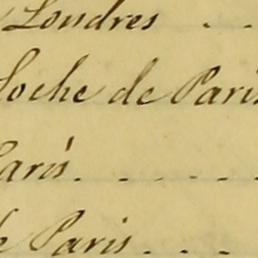 Londres . .
Loche de Paris
Paris. . . . .
de Paris. . . .